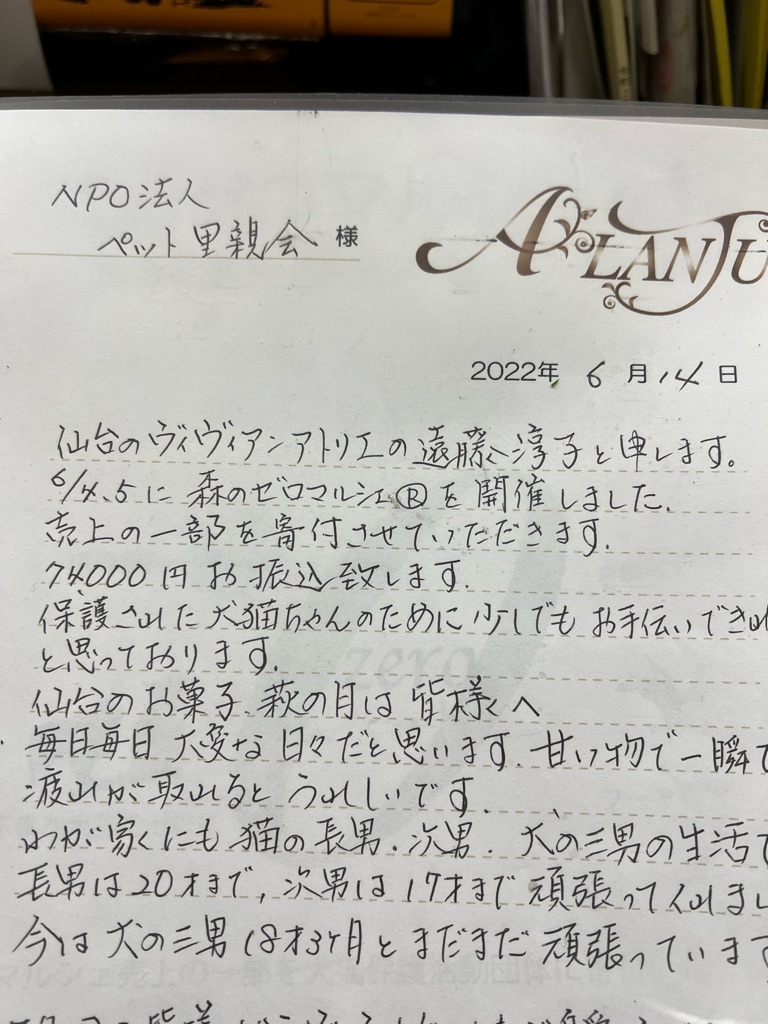 NPO法人
ペット里親会 様
ALANJU
2022年 6月14日
仙台のヴィヴィアンアトリエの遠藤淳子と申します。
6/4.5に 森のゼロマルシェ®を開催しました.
売上の一部を寄付させていただきます.
74000円お振込致します.
保護された犬猫ちゃんのために少しでもお手伝いできれ
と思っております.
zero
仙台のお菓子.萩の月は皆様へ
毎日毎日大変な日々だと思います.甘い物で一瞬で
疲れが取れるとうれしいです.
わが家にも猫の長男.次男.犬の三男の生活で
長男は20才まで,次男は17才まで頑張ってくれまし
今は犬の三男18才3ヶ月とまだまだ頑張っています